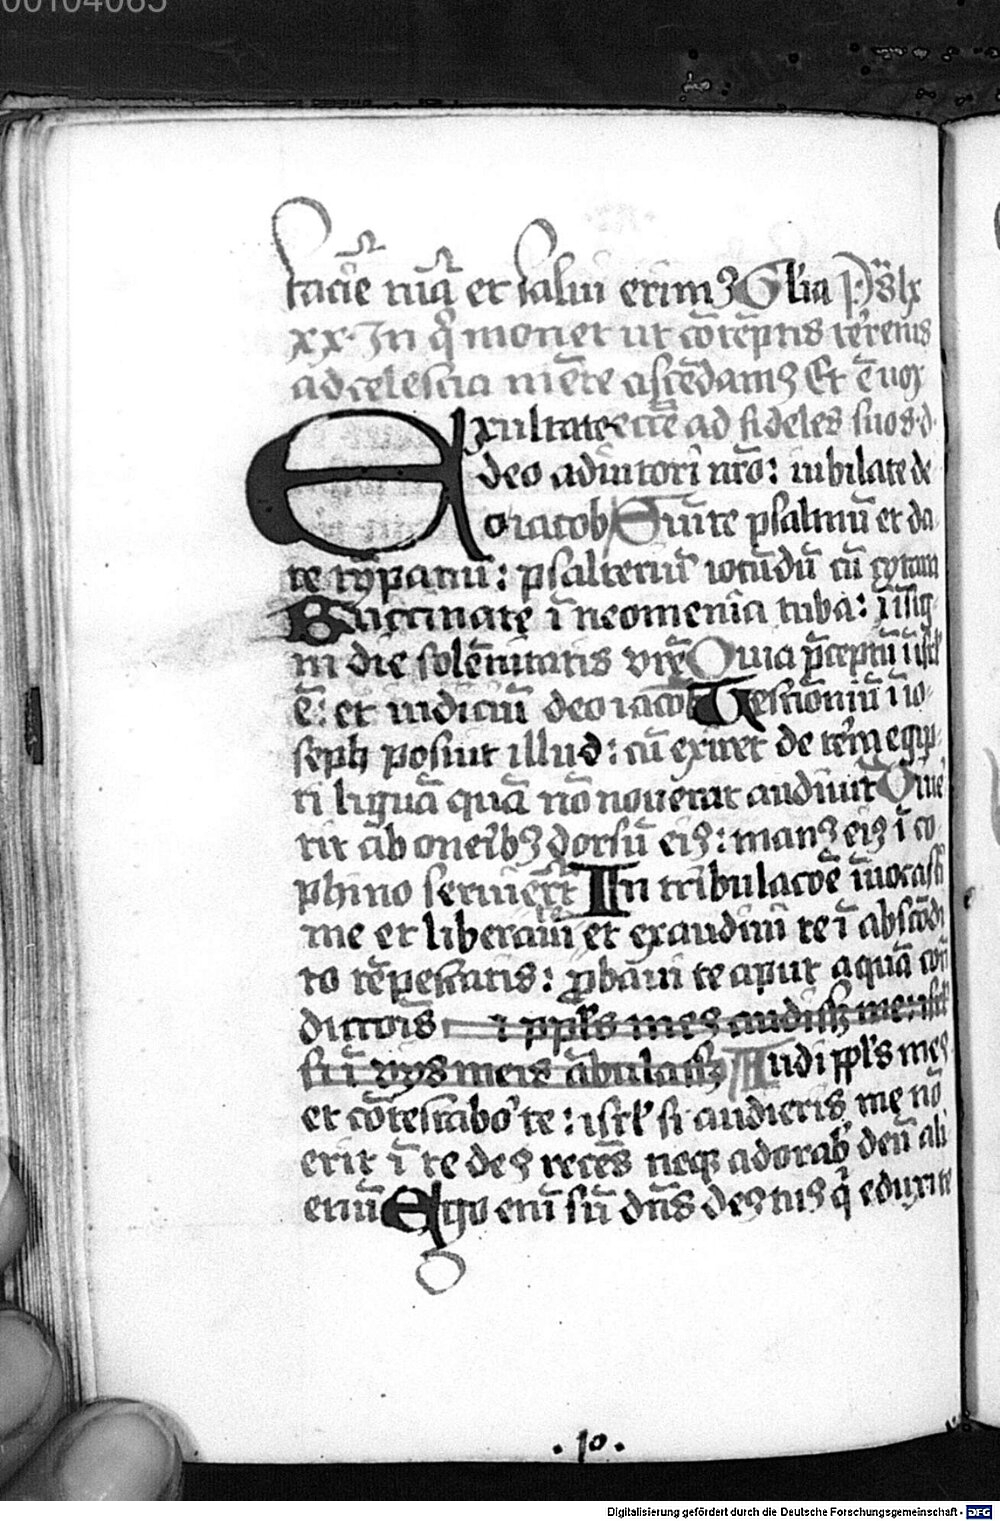 00104085
faciē tuā et salui erimꝫ Gl'ia P̄s lx
xx. In q̊ monet ut cōtēptis terrenis
ad celestia mēte ascēdamꝫ Et ē uox
Exultate eccē ad fideles suos. d.
deo adiutori nrō: iubilate de
o iacob Sumite psalmū et da
te tȳpanū: psalteriū iocūdū cū cytara
Buccinate ī neomenia tuba: ī īsig
ni die solēnitatis vrē Quia p̄ceptū ī isrl'
ē: et iudiciū deo iacob Testīoniū ī io
seph posuit illud: cū exiret de terra egip
ti liguā quā nō nouerat audiuit Diue
rtit ab oneribꝫ dorsū eiꝫ: manꝫ eiꝫ ī co
phino seruierūt In tribulacōe īuocasti
me et liberaui te et exaudiui te ī abscōdi
to tēpestatis: p̄baui te aput aquā cōt̄
dictōis i ppl's meꝫ audisꝫ me: isrl'
si ī vijs meis ābulasꝫ Audi ppl's meꝫ
et cōtestabor te: isrl' si audieris me nō
erit ī te deꝫ recēs neqꝫ adorab' deū ali
enū Ego enī sū dn̄s deꝫ tuꝫ q̇ eduxi te
. 10 .
Digitalisierung gefördert durch die Deutsche Forschungsgemeinschaft - DFG